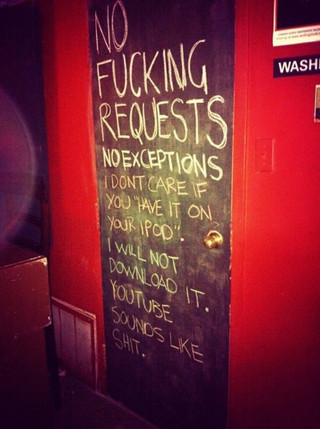 NO
FUCKING
REQUESTS
NO EXCEPTIONS
I DONT CARE IF
YOU "HAVE IT ON
YOUR IPOD".
I WILL NOT
DOWNLOAD IT.
YOUTUBE
SOUNDS LIKE
SHIT.